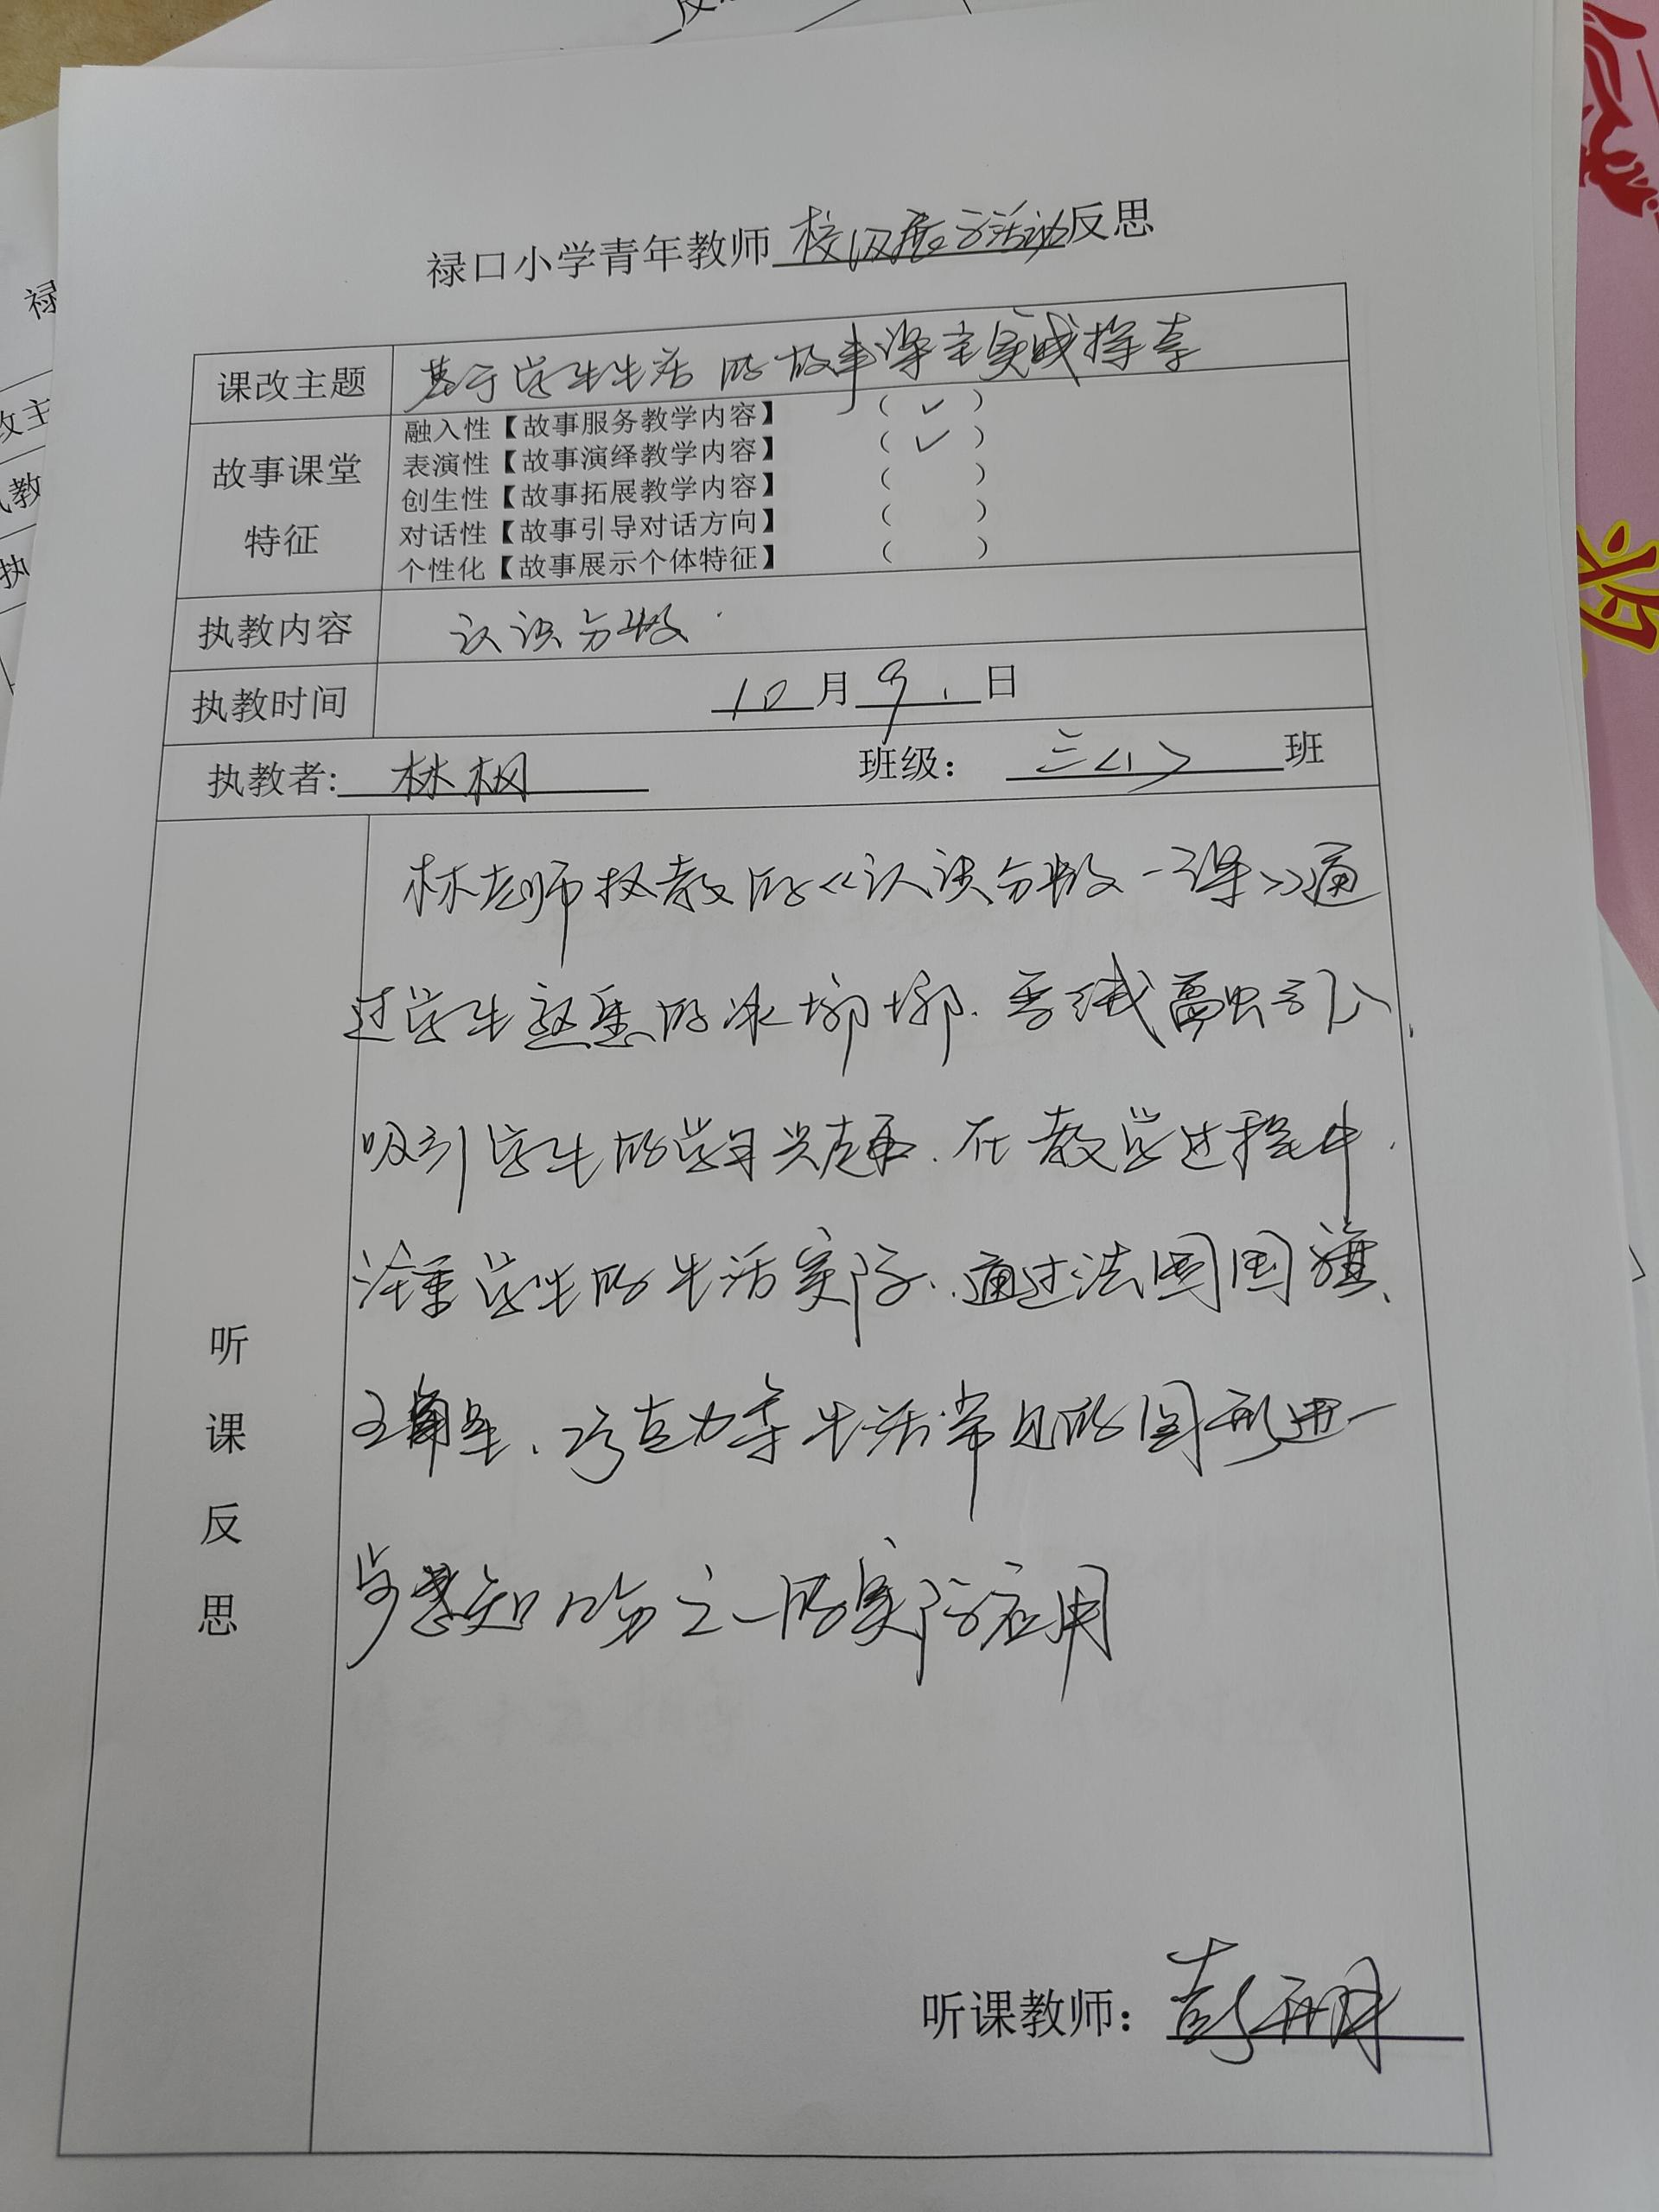 禄口小学青年教师校级展示活动反思
课改主题 基于学生生活的故事课堂实践探索
故事课堂特征
融入性【故事服务教学内容】 （ ✓ ）
表演性【故事演绎教学内容】 （ ✓ ）
创生性【故事拓展教学内容】 （ ）
对话性【故事引导对话方向】 （ ）
个性化【故事展示个体特征】 （ ）
执教内容 认识分数
执教时间 10月9日
执教者：林枫 班级：三（1）班
听课反思
林老师执教的《认识分数一课》通
过学生熟悉的冰墩墩、雪绒融引入，
吸引学生的学习兴趣.在教学过程中.
注重学生的生活实际.通过法国国旗、
五角星、巧克力等生活常见的图形进一
步感知几分之一的实际应用
听课教师：彭